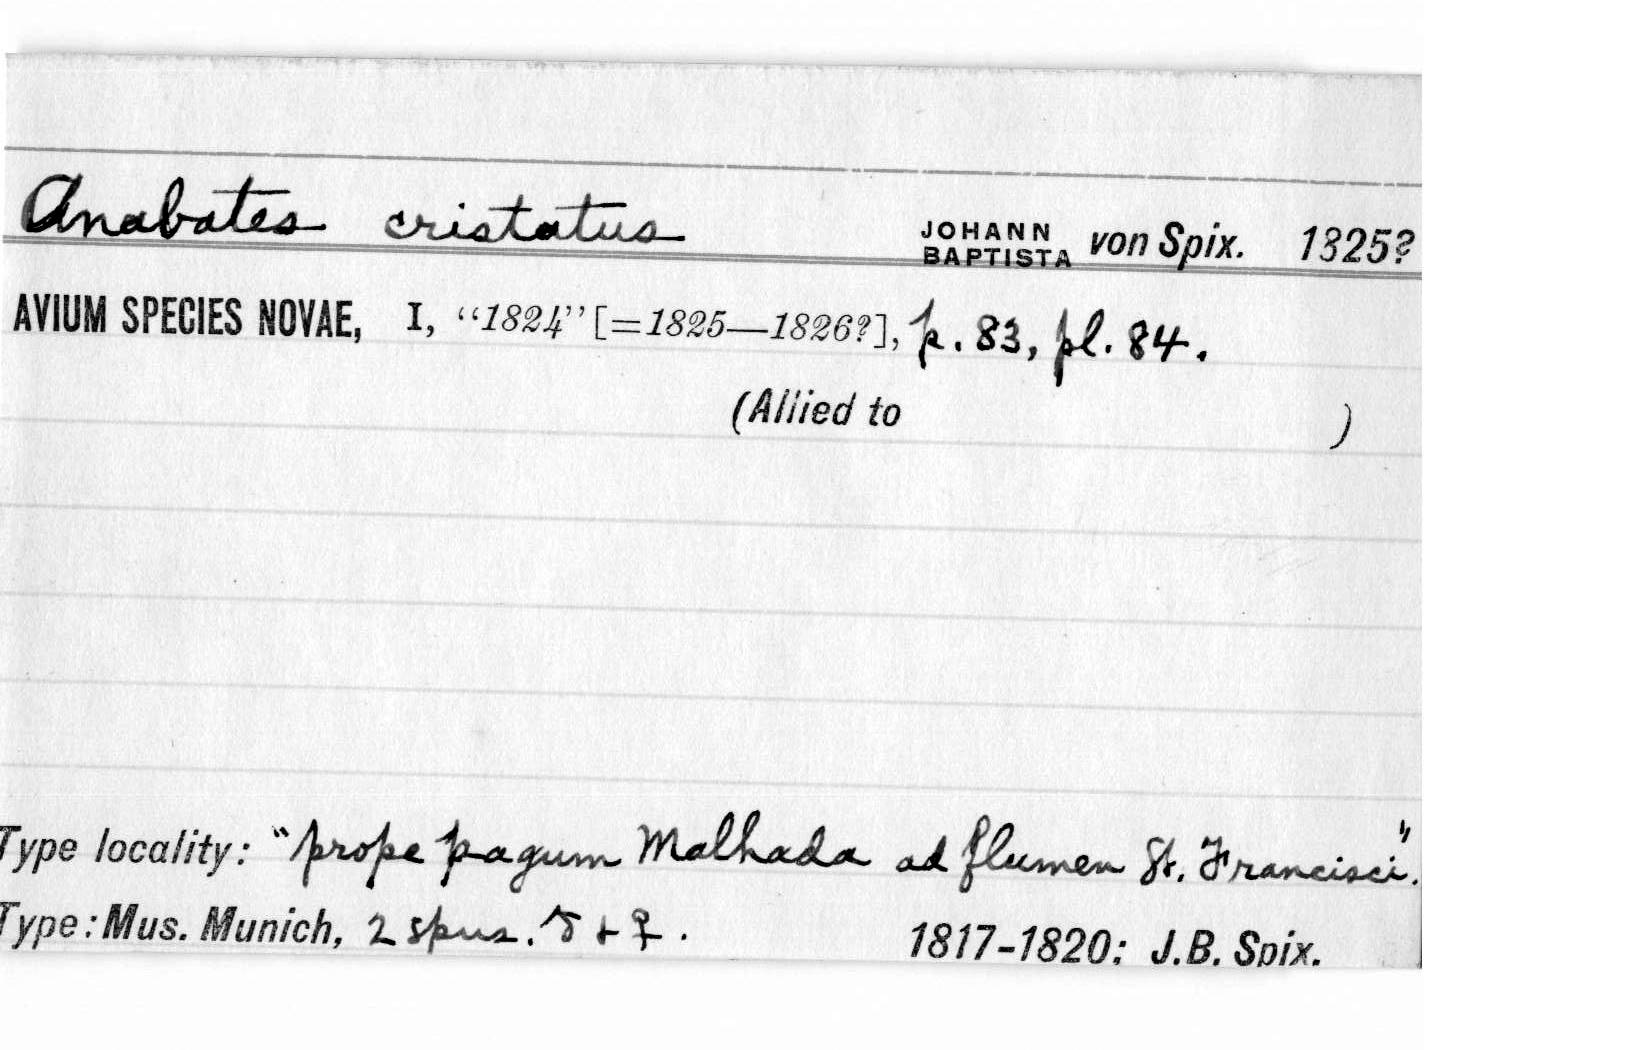 Anabates cristatus JOHANN BAPTISTA von Spix. 1825?
AVIUM SPECIES NOVAE, I, “1824” [=1825—1826?], p. 83, pl. 84.
(Allied to )
Type locality: “prope pagum Malhada ad flumen St. Francisci.”
Type: Mus. Munich, 2 spms. ♂ + ♀.
1817-1820; J.B. Spix.